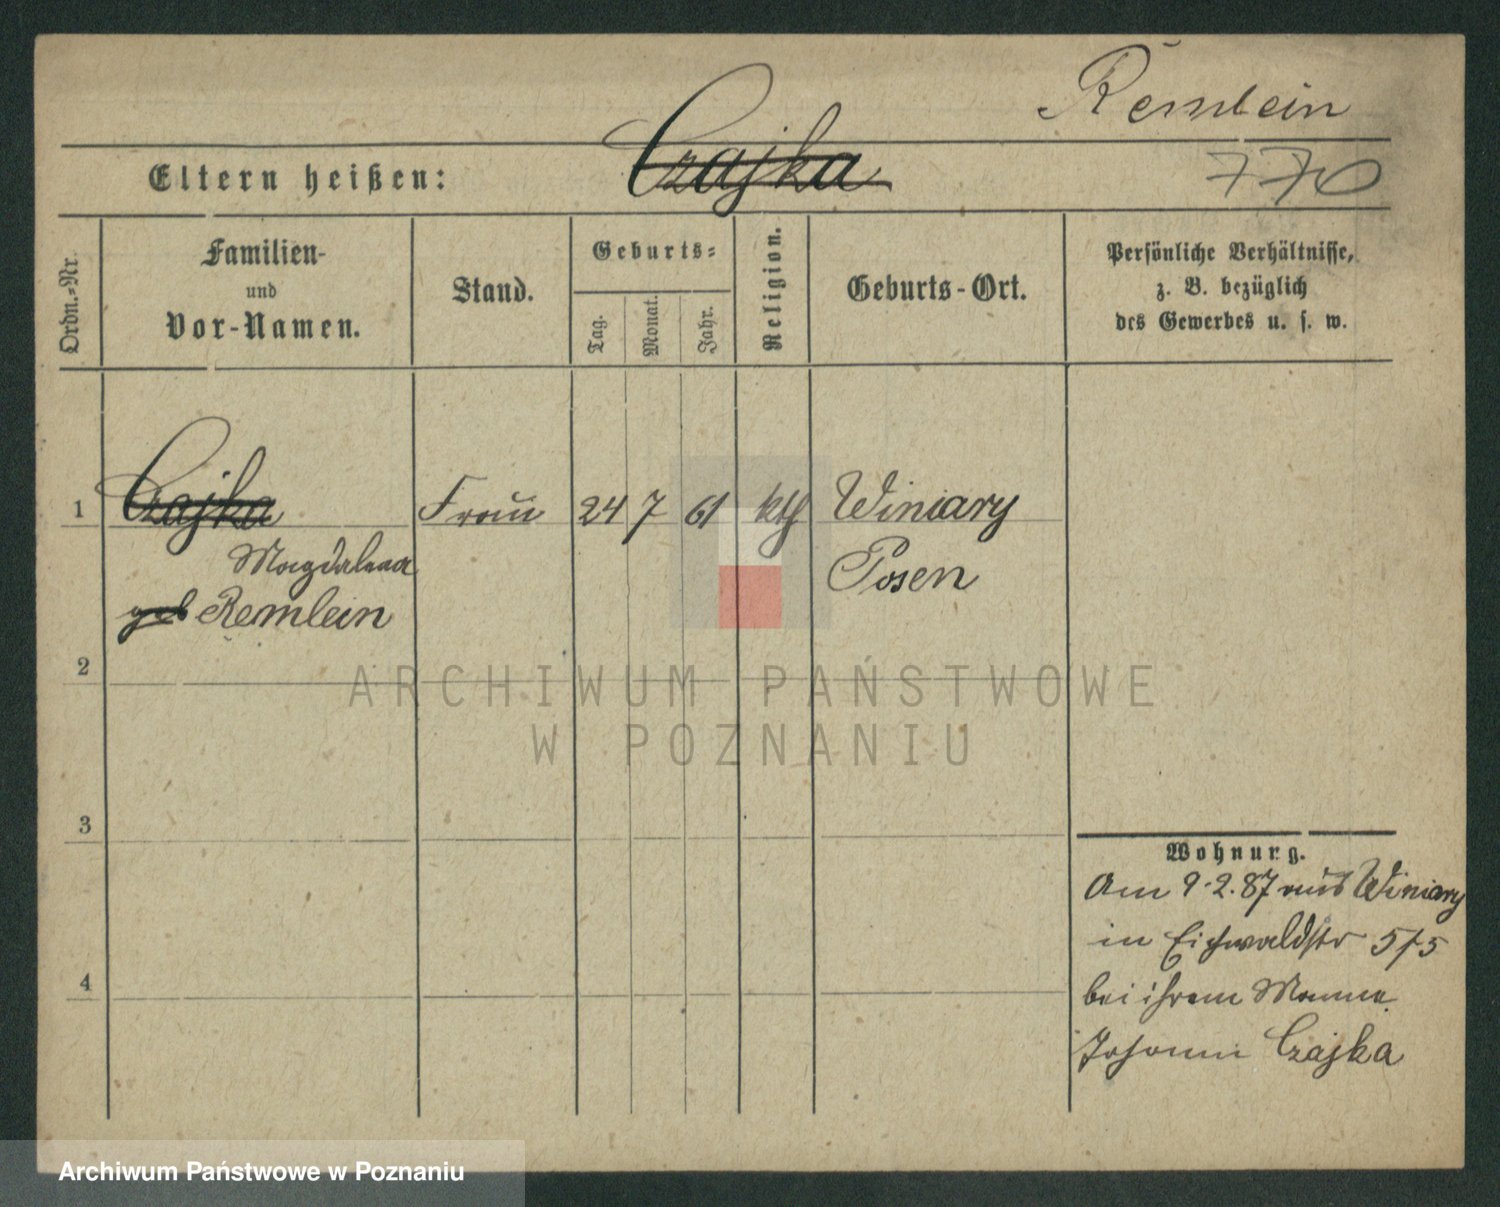 Remlein
Eltern heißen: Czajka 776
Ordn.=Nr.
Familien-
und
Vor-Namen.
Stand.
Geburts=
Tag.
Monat.
Jahr.
Religion.
Geburts-Ort.
Persönliche Verhältnisse,
z. B. bezüglich
des Gewerbes u. s. w.
1 Czajka Frau 24 7 61 kth Winiary
Magdalena Posen
geb Remlein
2
ARCHIWUM PAŃSTWOWE
W POZNANIU
3
Wohnung.
Am 9.2.87 aus Winiary
in Eichwaldstr 5/5
4
bei ihrem Manne
Johann Czajka
Archiwum Państwowe w Poznaniu